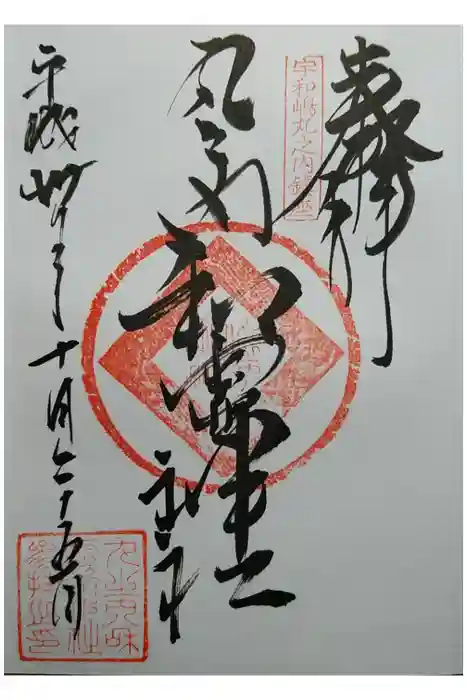 奉拝
宇和嶋丸之内鎮座
丸之内和霊神社
平成卅年十月二十五日
丸之内和
霊神社